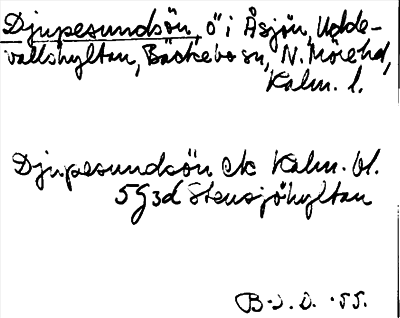 Djupesundsön, ö i Åsjön, Udde-
vallshyltan, Bäckebo sn, N. Möre hd,
Kalm. l.
Djupesundsön ek Kalm. bl.
5G3d Stensjöhyltan
B.J.D. -55.